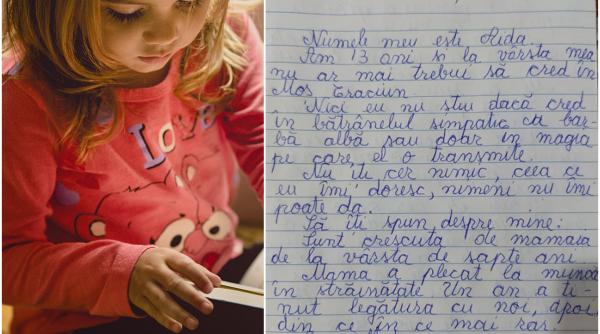 LOVE
Numele meu este Aida.
Am 13 ani și la vârsta mea
nu ar mai trebui să cred în
Moș Crăciun.
Nici eu nu știu dacă cred
în bătrânelul simpatic cu bar-
bă albă sau doar în magia
pe care el o transmite.
Nu îți cer nimic, ceea ce
eu îmi doresc, nimeni nu îmi
poate da.
Să îți spun despre mine:
Sunt crescută de mamaia
de la vârsta de șapte ani.
Mama a plecat la muncă
în străinătate. Un an a ți-
nut legătura cu noi, apoi
din ce în ce mai rar.